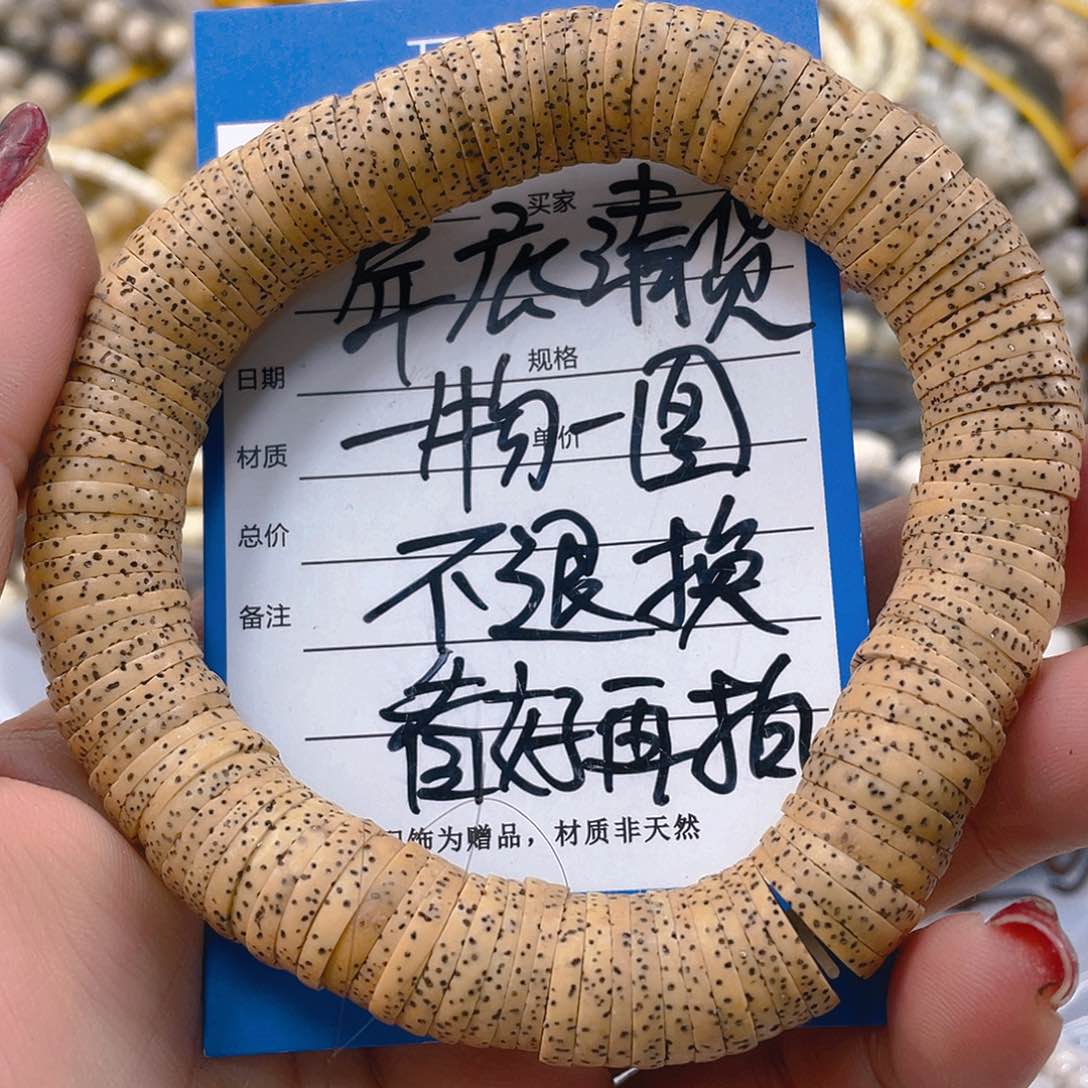 买家
年底清货
规格
日期
一物一图
单价
材质
不退换
总价
备注
看好再拍
饰为赠品，材质非天然